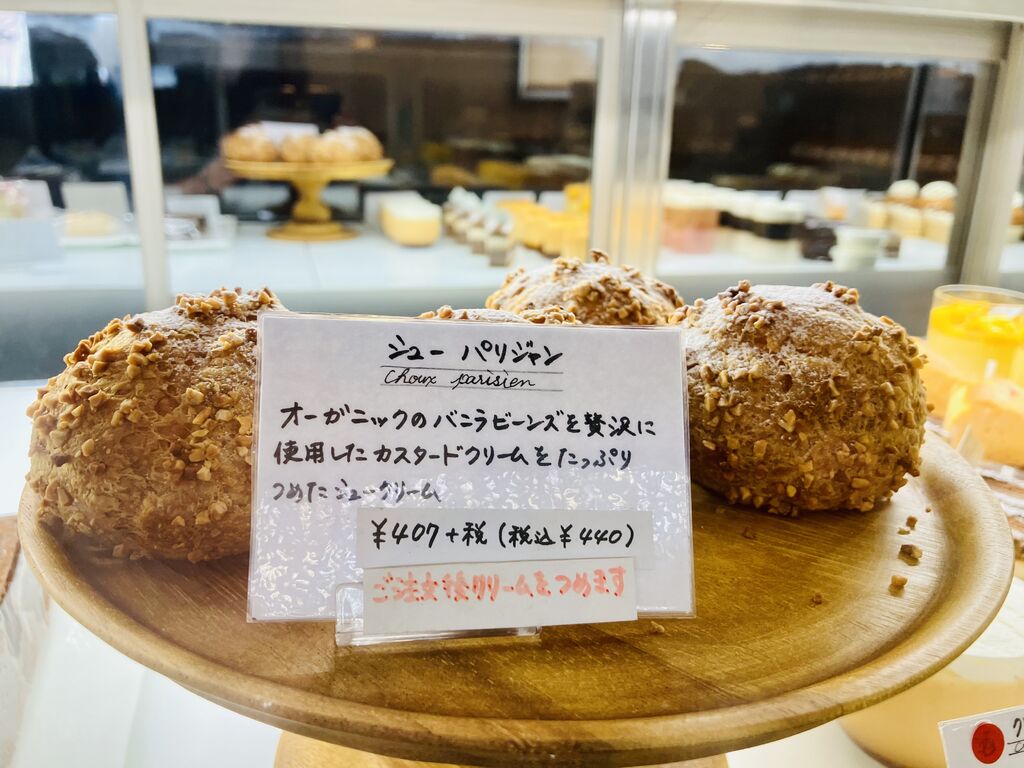 シュー パリジャン
choux parisien
オーガニックのバニラビーンズを贅沢に
使用したカスタードクリームをたっぷり
つめたシュークリーム
¥407+税(税込¥440)
ご注文後クリームをつめます